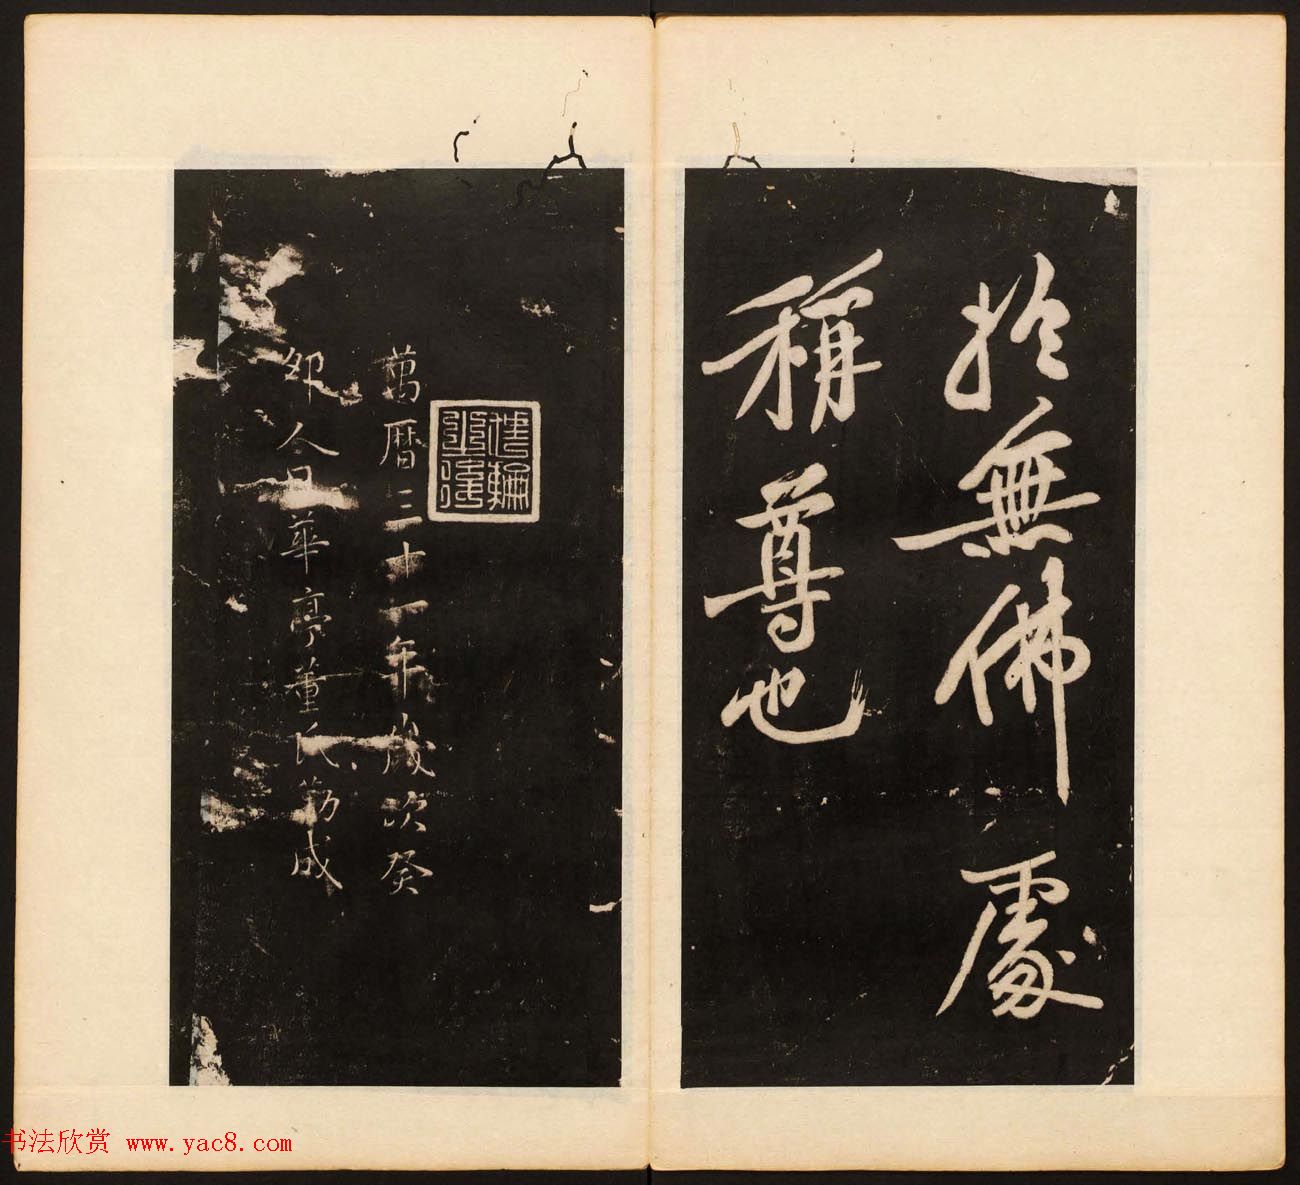 於無佛處
稱尊也
萬曆三十一年歲次癸
卯人日華亭董氏勒成
书法欣赏 www.yac8.com